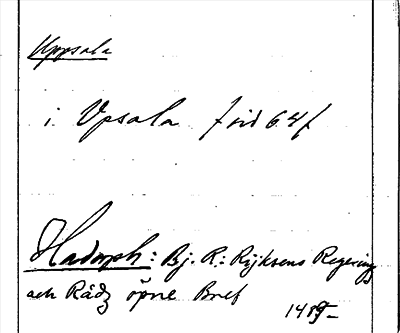 Uppsala
i Vpsala
Hadorph: Bj. R: Rijksens Regering
och Rådz öpne Bref